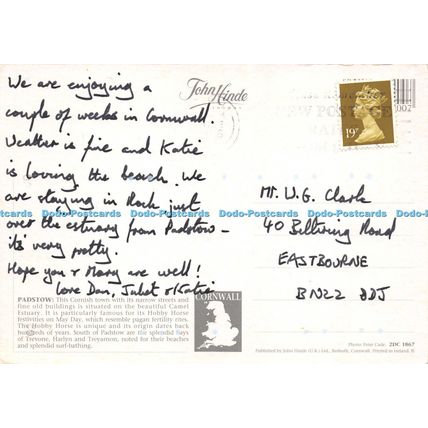 We are enjoying a
couple of weeks in Cornwall.
Weather is fine and Katie
is loving the beach. We
are staying in Rock just
over the estuary from Padstow –
it's very pretty.
Hope you & Mary are well!
love Dan, Juliet & Katie
PADSTOW: This Cornish town with its narrow streets and
fine old buildings is situated on the beautiful Camel
Estuary. It is particularly famous for its Hobby Horse
festivities on May Day, which resemble pagan fertility rites.
The Hobby Horse is unique and its origin dates back
hundreds of years. South of Padstow are the splendid bays
of Trevone, Harlyn and Treyarnon, noted for their beaches
and splendid surf-bathing.
John Hinde
CORNWALL
NEW POSTAGE
19
007
Mr. W.G. Clark
40 Beltring Road
EASTBOURNE
BN22 8DJ
Photo: Peter Cade. 2DC 1867
Published by John Hinde (U.K.) Ltd., Redruth, Cornwall. Printed in Ireland.
Dodo-Postcards Dodo-Postcards Dodo-Postcards Dodo-Postcards